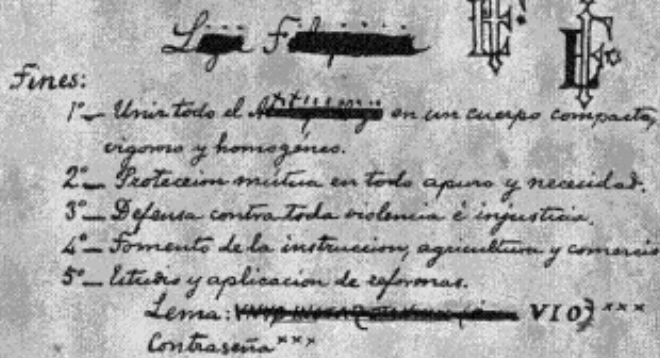 Fines:
1º— Unir todo el en un cuerpo compacto,
vigoroso y homogéneo.
2º— Proteccion mútua en todo apuro y necesidad.
3º— Defensa contra toda violencia é injusticia.
4º— Fomento de la instruccion, agricultura y comercio
5º— Estudio y aplicacion de reformas.
Lema: VIO) xxx
Contraseña xxx